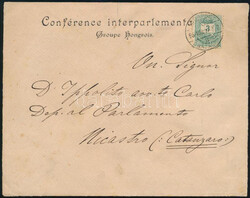 Conférence interparlementa
Groupe Hongrois.
On. Signor
D. Ippolito avv. to Carlo
Dep. al Parlamento
Nicastro (: Catanzaro:)